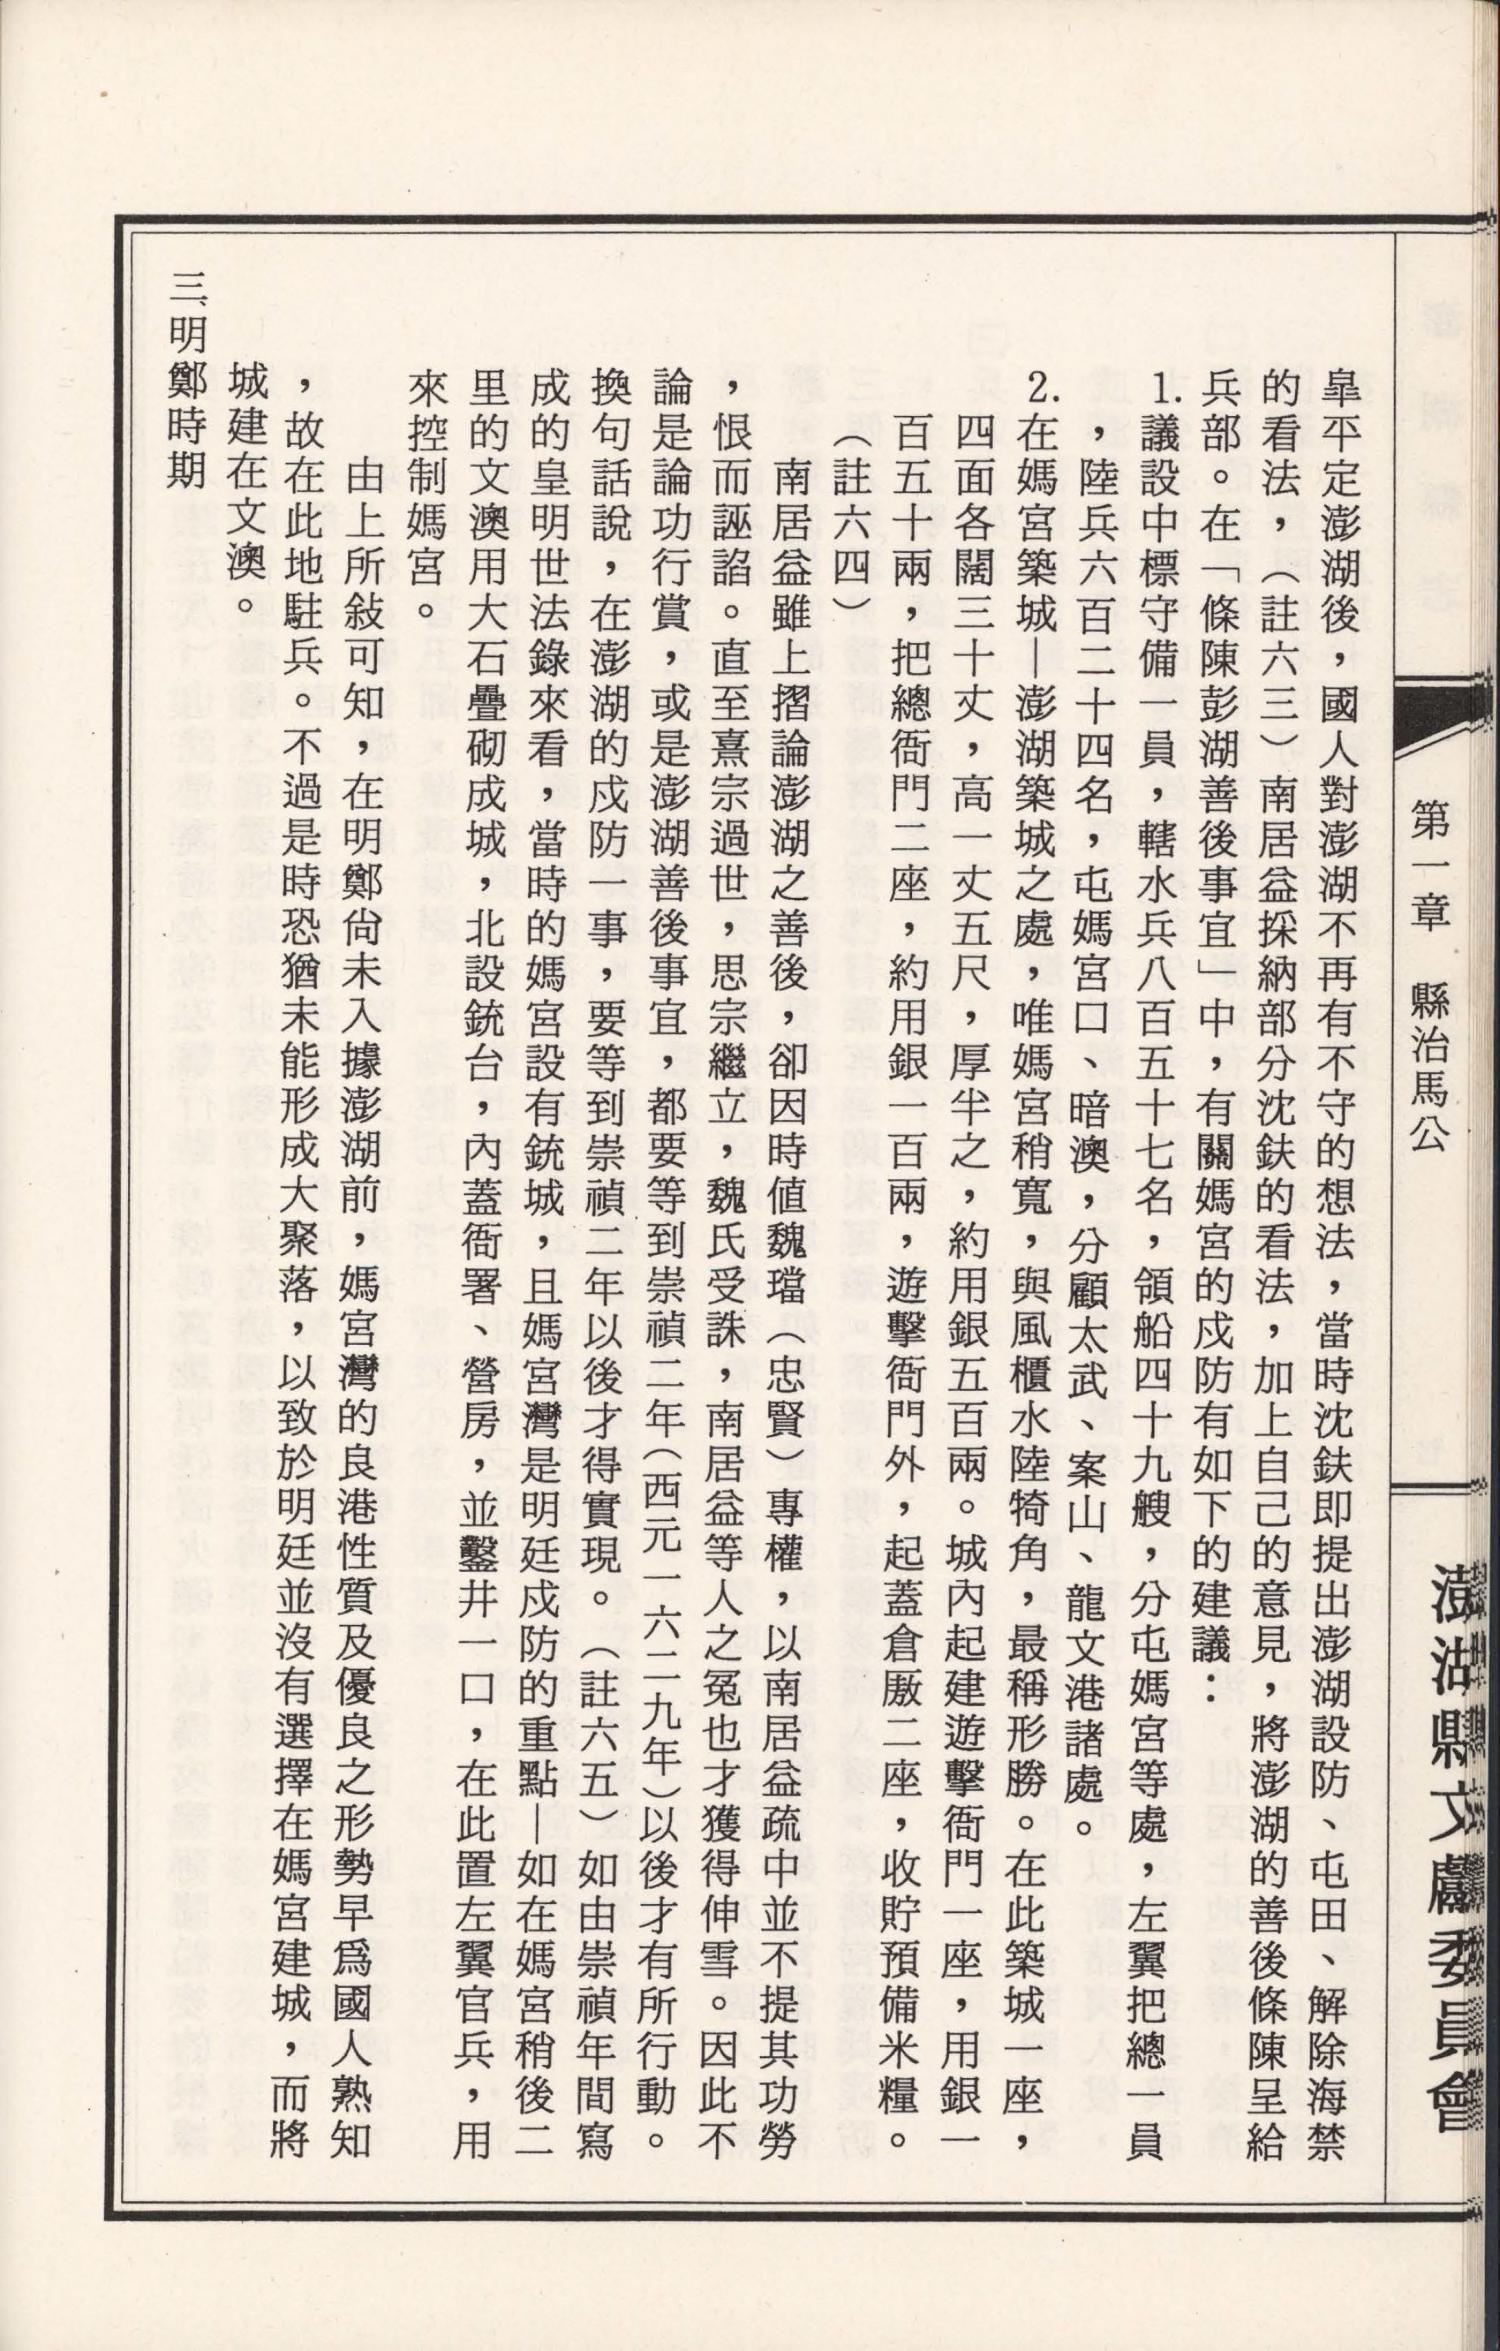 第一章　縣治馬公
澎湖縣文獻委員會
皐平定澎湖後，國人對澎湖不再有不守的想法，當時沈鈇即提出澎湖設防、屯田、解除海禁
的看法，（註六三）南居益採納部分沈鈇的看法，加上自己的意見，將澎湖的善後條陳呈給
兵部。在「條陳彭湖善後事宜」中，有關媽宮的戍防有如下的建議：
1.議設中標守備一員，轄水兵八百五十七名，領船四十九艘，分屯媽宮等處，左翼把總一員
，陸兵六百二十四名，屯媽宮口、暗澳，分顧太武、案山、龍文港諸處。
2.在媽宮築城—澎湖築城之處，唯媽宮稍寬，與風櫃水陸犄角，最稱形勝。在此築城一座，
四面各闊三十丈，高一丈五尺，厚半之，約用銀五百兩。城內起建遊擊衙門一座，用銀一
百五十兩，把總衙門二座，約用銀一百兩，遊擊衙門外，起蓋倉厫二座，收貯預備米糧。
（註六四）
南居益雖上摺論澎湖之善後，卻因時値魏璫（忠賢）專權，以南居益疏中並不提其功勞
，恨而誣諂。直至熹宗過世，思宗繼立，魏氏受誅，南居益等人之冤也才獲得伸雪。因此不
論是論功行賞，或是澎湖善後事宜，都要等到崇禎二年（西元一六二九年）以後才有所行動。
換句話說，在澎湖的戍防一事，要等到崇禎二年以後才得實現。（註六五）如由崇禎年間寫
成的皇明世法錄來看，當時的媽宮設有銃城，且媽宮灣是明廷戍防的重點—如在媽宮稍後二
里的文澳用大石疊砌成城，北設銃台，內蓋衙署、營房，並鑿井一口，在此置左翼官兵，用
來控制媽宮。
由上所敍可知，在明鄭尙未入據澎湖前，媽宮灣的良港性質及優良之形勢早爲國人熟知
，故在此地駐兵。不過是時恐猶未能形成大聚落，以致於明廷並沒有選擇在媽宮建城，而將
城建在文澳。
三、明鄭時期